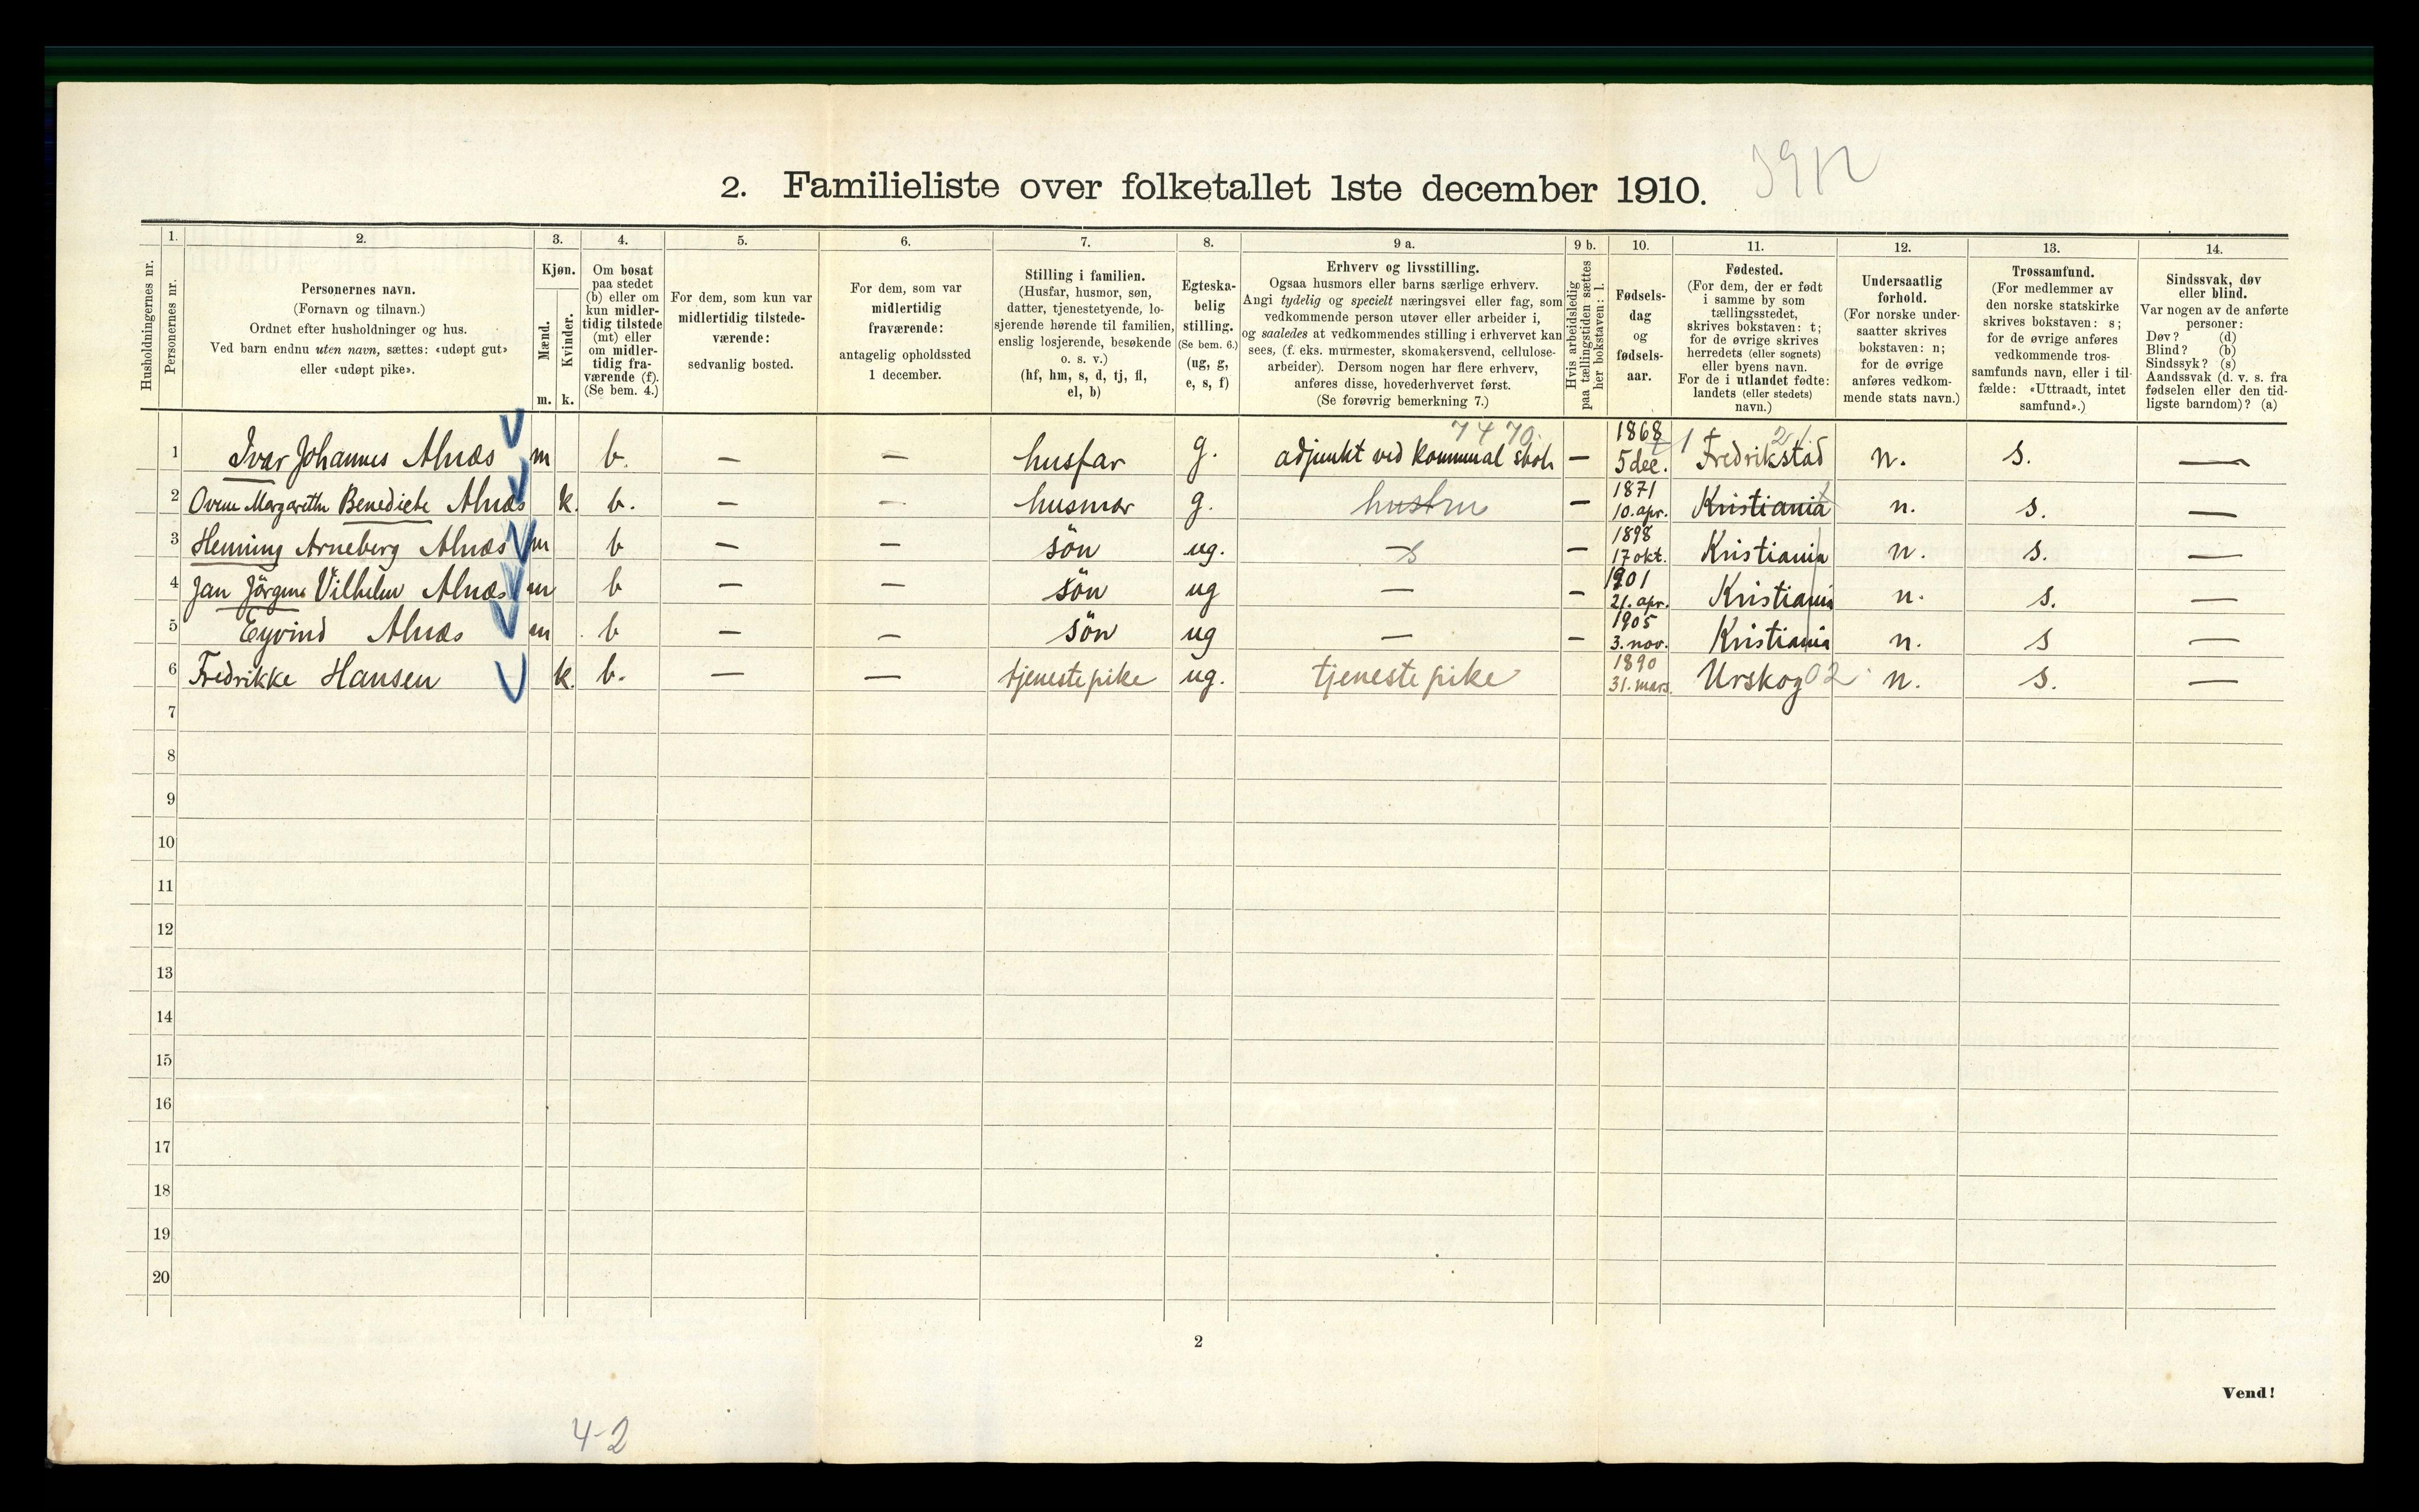 2. Familieliste over folketallet 1ste december 1910.
1. 2. 3. 4. 5. 6. 7. 8. 9 a. 9 b. 10. 11. 12. 13. 14.
Husholdningernes nr.
Personernes nr.
Personernes navn.
(Fornavn og tilnavn.)
Ordnet efter husholdninger og hus.
Ved barn endnu uten navn, sættes: «udøpt gut»
eller «udøpt pike».
Kjøn.
Mænd.
Kvinder.
m. k.
Om bosat
paa stedet
(b) eller om
kun midler-
tidig tilstede
(mt) eller
om midler-
tidig fra-
værende (f).
(Se bem. 4.)
For dem, som kun var
midlertidig tilstede-
værende:
sedvanlig bosted.
For dem, som var
midlertidig
fraværende:
antagelig opholdssted
1 december.
Stilling i familien.
(Husfar, husmor, søn,
datter, tjenestetyende, lo-
sjerende hørende til familien,
enslig losjerende, besøkende
o. s. v.)
(hf, hm, s, d, tj, fl,
el, b)
Egteska-
belig
stilling.
(Se bem. 6.)
(ug, g,
e, s, f)
Erhverv og livsstilling.
Ogsaa husmors eller barns særlige erhverv.
Angi tydelig og specielt næringsvei eller fag, som
vedkommende person utøver eller arbeider i,
og saaledes at vedkommendes stilling i erhvervet kan
sees, (f. eks. murmester, skomakersvend, cellulose-
arbeider). Dersom nogen har flere erhverv,
anføres disse, hovederhvervet først.
(Se forøvrig bemerkning 7.)
Hvis arbeidsledig
paa tællingstiden sættes
her bokstaven: l.
Fødsels-
dag
og
fødsels-
aar.
Fødested.
(For dem, der er født
i samme by som
tællingsstedet,
skrives bokstaven: t;
for de øvrige skrives
herredets (eller sognets)
eller byens navn.
For de i utlandet fødte:
landets (eller stedets)
navn.)
Undersaatlig
forhold.
(For norske under-
saatter skrives
bokstaven: n;
for de øvrige
anføres vedkom-
mende stats navn.)
Trossamfund.
(For medlemmer av
den norske statskirke
skrives bokstaven: s;
for de øvrige anføres
vedkommende tros-
samfunds navn, eller i til-
fælde: «Uttraadt, intet
samfund».)
Sindssvak, døv
eller blind.
Var nogen av de anførte
personer:
Døv? (d)
Blind? (b)
Sindssyk? (s)
Aandssvak (d. v. s. fra
fødselen eller den tid-
ligste barndom)? (a)
7470.
1 Ivar Johannes Alnæs m b. — — husfar g. adjunkt ved kommunal skole — 1868 5 dec. Fredrikstad n. s. —
2 Margarethe Benedicte Alnæs k. b. — — husmor g. hustru — 1871 10. apr. Kristiania n. s. —
3 Henning Arneberg Alnæs m b — — sön ug. — — 1898 17 okt. Kristiania n. s. —
4 Jan Jörgen Vilhelm Alnæs m b — — sön ug — — 1901 21. apr. Kristiania n. s. —
5 Eyvind Alnæs m b — — sön ug — — 1905 3. nov. Kristiania n. s —
6 Fredrikke Hansen k. b. — — tjenestepike ug. tjenestepike 1890 31. mars. Urskog 02 n. s. —
7
8
9
10
11
12
13
14
15
16
17
18
19
20
2
Vend!
4-2